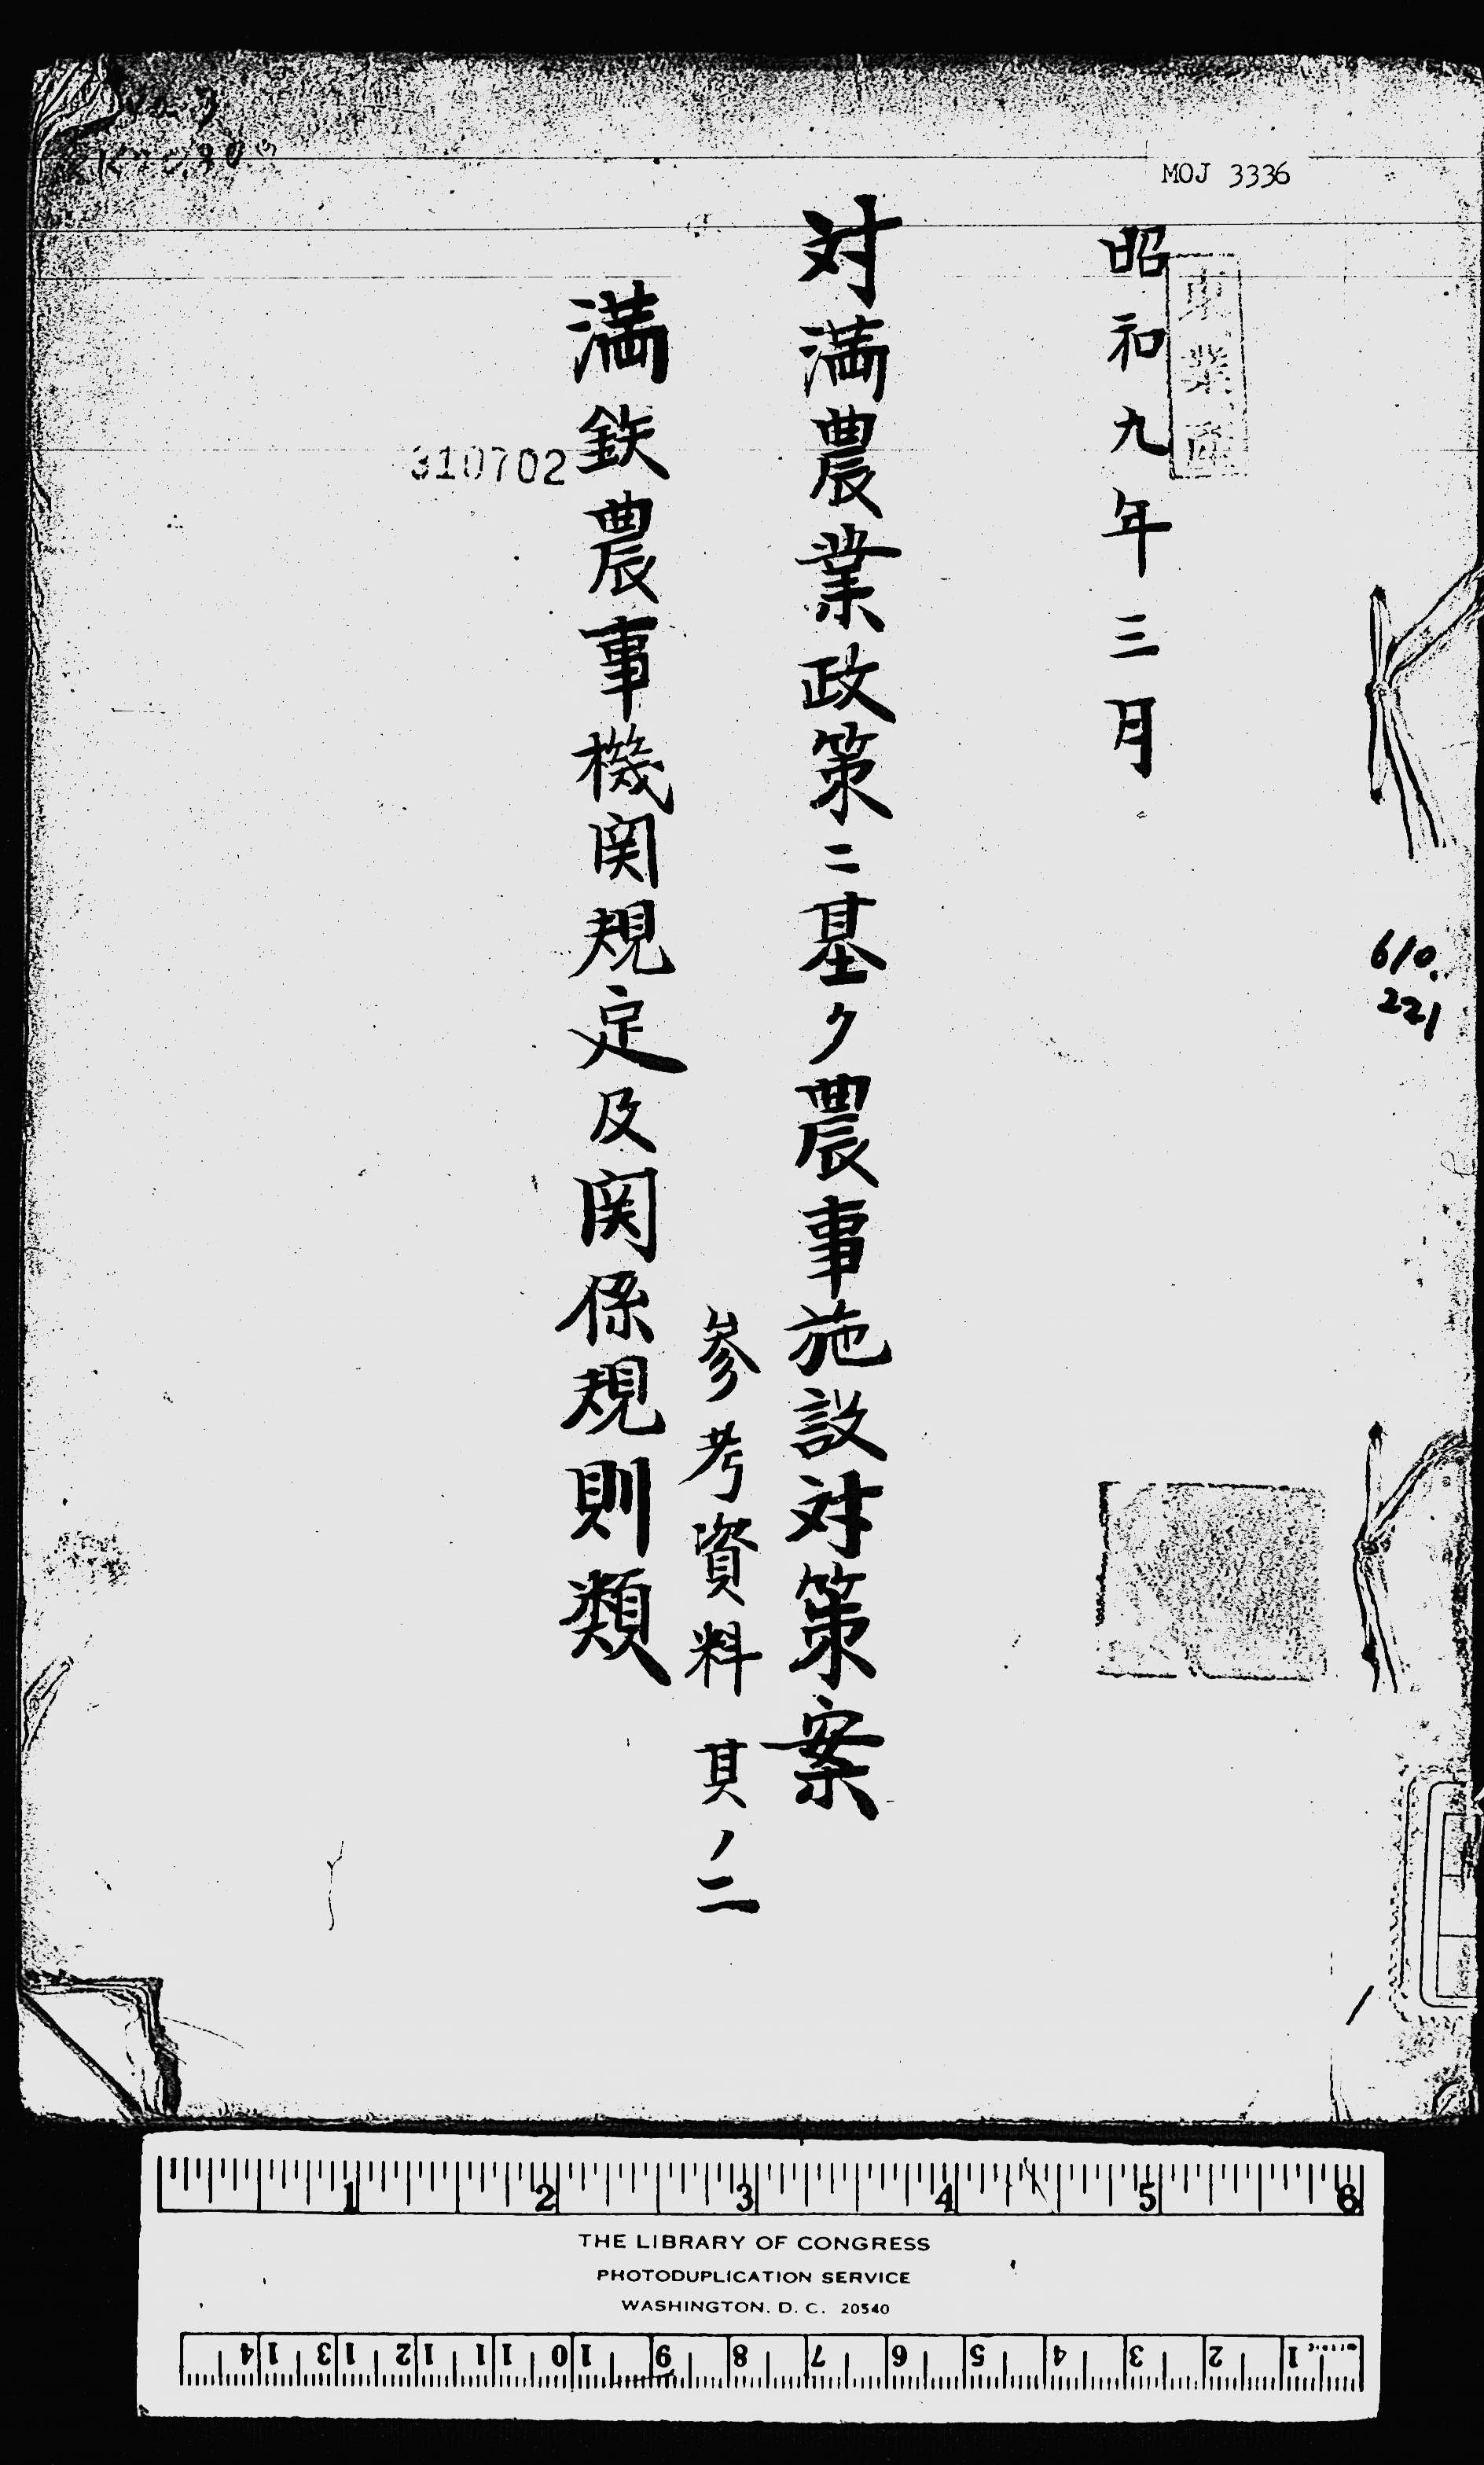 MOJ 3336
昭和九年三月
対満農業政策ニ基ク農事施設対策案
参考資料 其ノ二
満鉄農事機関規定及関係規則類
310702
610.
221
1 2 3 4 5 6
THE LIBRARY OF CONGRESS
PHOTODUPLICATION SERVICE
WASHINGTON, D. C. 20540
1 2 3 4 5 6 7 8 9 10 11 12 13 14